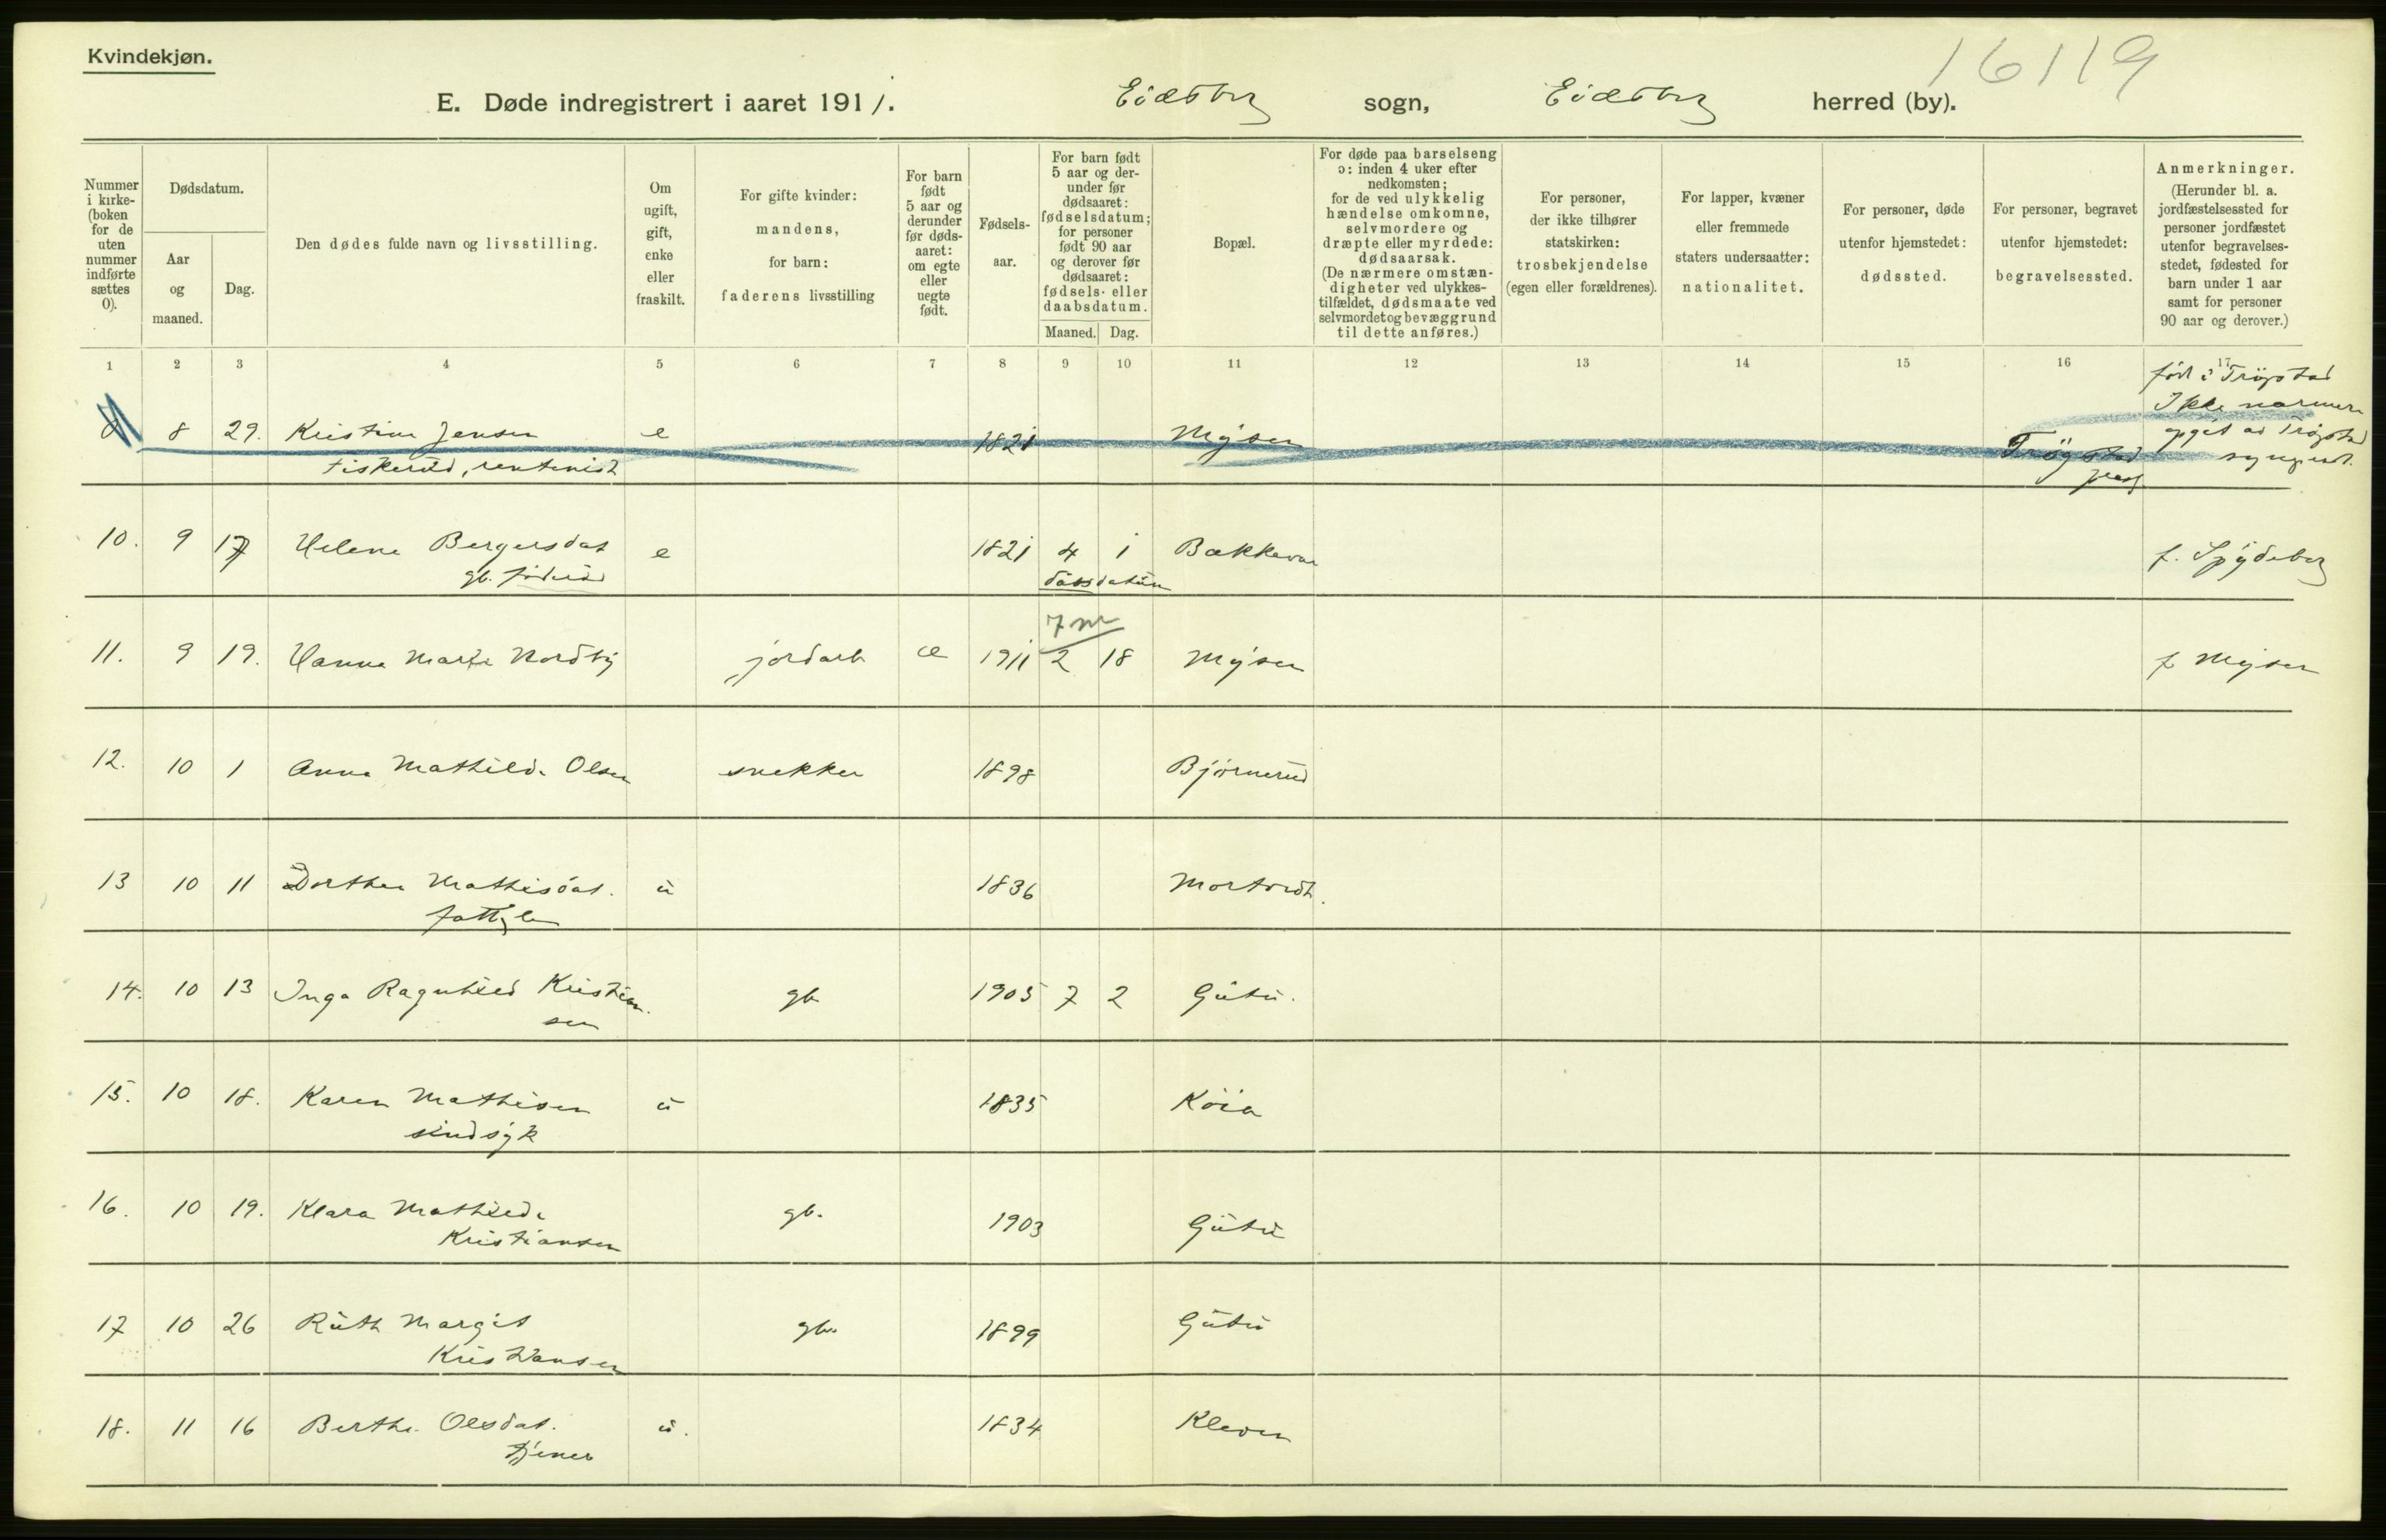 Kvindekjøn.
16119
E. Døde indregistrert i aaret 1911. Eidsberg sogn, Eidsberg herred (by).
Nummer i kirke-(boken for de uten nummer indførte sættes 0).
Dødsdatum.
Aar og maaned.
Dag.
Den dødes fulde navn og livsstilling.
Om ugift, gift, enke eller fraskilt.
For gifte kvinder: mandens, for barn: faderens livsstilling
For barn født 5 aar og derunder før døds-aaret: om egte eller uegte født.
Fødsels-aar.
For barn født 5 aar og der-under før dødsaaret: fødselsdatum; for personer født 90 aar og derover før dødsaaret: fødsels- eller daabsdatum.
Maaned. Dag.
Bopæl.
For døde paa barselseng ɔ: inden 4 uker efter nedkomsten; for de ved ulykkelig hændelse omkomne, selvmordere og dræpte eller myrdede: dødsaarsak. (De nærmere omstæn-digheter ved ulykkes-tilfældet, dødsmaate ved selvmordet og bevæggrund til dette anføres.)
For personer, der ikke tilhører statskirken: trosbekjendelse (egen eller forældrenes).
For lapper, kvæner eller fremmede staters undersaatter: nationalitet.
For personer, døde utenfor hjemstedet: dødssted.
For personer, begravet utenfor hjemstedet: begravelsessted.
Anmerkninger. (Herunder bl. a. jordfæstelsessted for personer jordfæstet utenfor begravelses-stedet, fødested for barn under 1 aar samt for personer 90 aar og derover.)
1 2 3 4 5 6 7 8 9 10 11 12 13 14 15 16 17
født i Trøgstad
Ikke nærmere
opgit av Trøgstad
8 29. Kristine Jensen e 1821 Mysen Trøgstad
Fiskerud, rentenist
10. 9 17 Helene Bergersdat e 1821 4 1 Bakkevar f. Spydeberg
gb. føderåd dåbsdatum
7 m
11. 9 19. Hanna Marie Nordby jordarb e 1911 2 18 Mysen f Mysen
12. 10 1 Anna Mathilde Olsen snekker 1898 Bjørnerud
13 10 11 Dorthea Mathisdat. u 1836 Mortvedt.
fattiglem
14. 10 13 Inga Ragnhild Kristian- gb 1905 7 2 Gutu.
sen
15. 10 18. Karen Mathisen u 1835 Koia
sindsyk
16. 10 19. Klara Mathilde gb. 1903 Gutu
Kristiansen
17 10 26 Ruth Margit gb. 1899 Gutu
Kristiansen
18. 11 16 Berthe Olsdat. u. 1834 Kleven
tjener